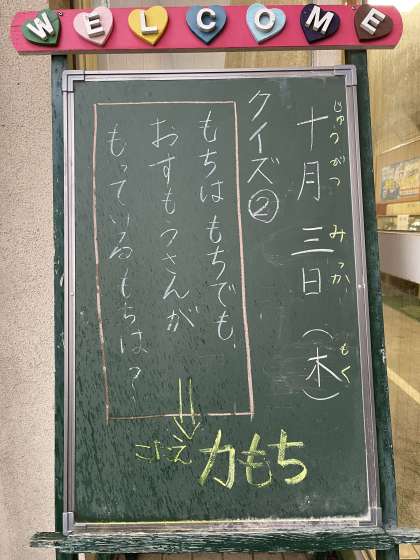 WELCOME
十月三日（木）
じゅうがつ みっか もく
クイズ②
もちはもちでも、
おすもうさんが
もっているもちは？
こたえ
力もち